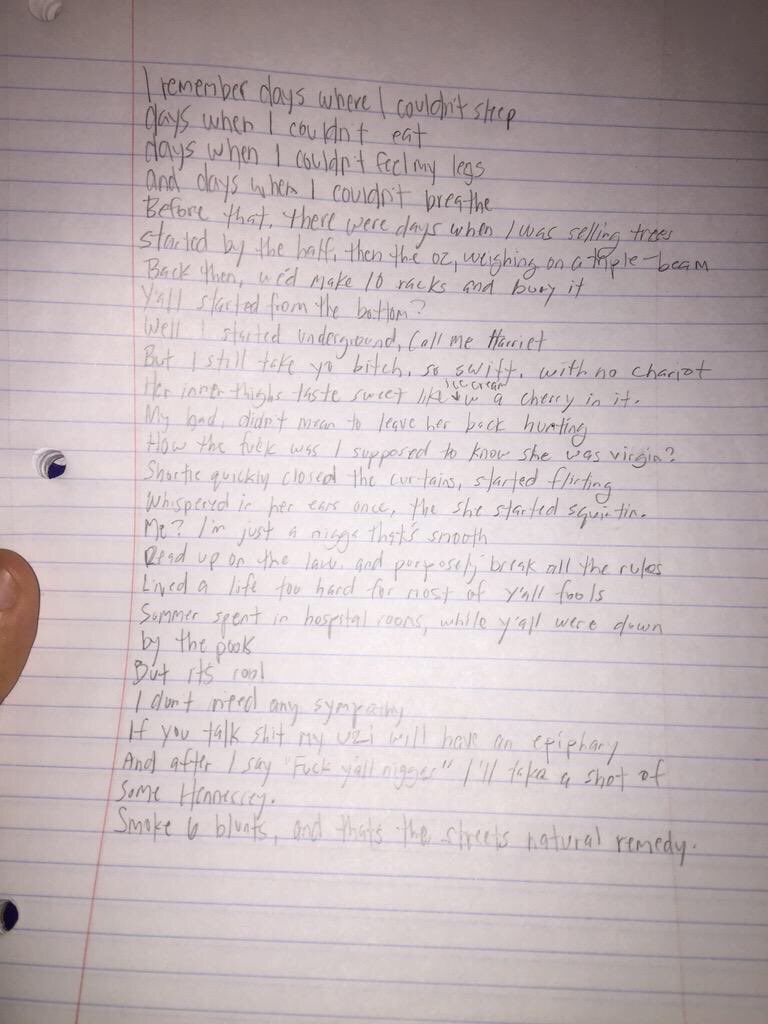 I remember days where I couldn't sleep
days when I couldn't eat
days when I couldn't feel my legs
and days when I couldn't breathe
Before that, there were days when I was selling trees
started by the half, then the oz, weighing on a triple-beam
Back then, we'd make 10 racks and bury it
Y'all started from the bottom?
Well I started underground, Call me Harriet
But I still take yo bitch, so swift, with no chariot
Her inner thighs taste sweet like ice cream w a cherry in it.
My bad, didn't mean to leave her back hurting
How the fuck was I supposed to know she was virgin?
Shortie quickly closed the curtains, started flirting
Whispered in her ears once, the she started squirtin.
Me? I'm just a nigga that's smooth
Read up on the law, and purposely break all the rules
Lived a life too hard for most of y'all fools
Summer spent in hospital rooms, while y'all were down
by the pools
But it's cool
I don't need any sympathy
If you talk shit my uzi will have an epiphany
And after I say "Fuck y'all niggas" I'll take a shot of
some Hennessey.
Smoke 6 blunts, and thats the streets natural remedy.